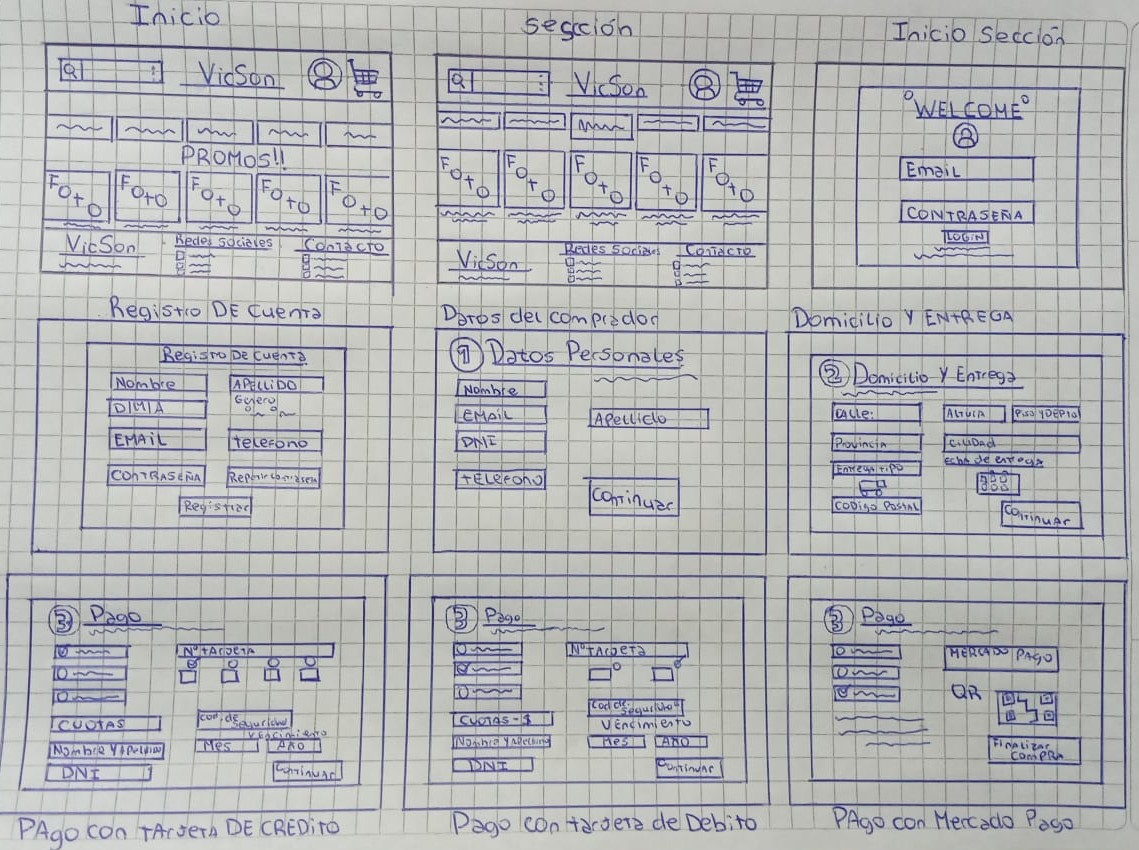 Inicio
VicSon
PROMOS!!
Foto Foto Foto Foto Foto
VicSon Redes Sociales Contacto
Seccción
VicSon
Foto Foto Foto Foto Foto
VicSon Redes Sociales Contacto
Inicio Sección
WELCOME
Email
CONTRASEÑA
LOGIN
Registro DE Cuenta
Registro De Cuenta
Nombre APELLIDO
D/M/A Genero
EMAIL telefono
CONTRASEÑA
Registrar
Datos del comprador
1 Datos Personales
Nombre
EMAIL Apellido
DNI
tELEFONO
Continuar
Domicilio Y ENtREGA
2 Domicilio Y Entrega
CALLE: Altura PISO Y DEPTO
Provincia CIUDAD
Entrega tipo Fecha de entrega
CODIGO POSTAL Continuar
3 Pago
N° tARJEtA
CUOTAS Cod. de seguridad
Vencimiento
Nombre Y Apellido Mes AÑO
DNI Continuar
PAgo con tARJEtA DE CREDito
3 Pago
N° tARJEtA
CUOTAS-1 Cod de seguridad
VEncimiento
Nombre Y Apellido Mes AÑO
DNI Continuar
Pago con tarjeta de Debito
3 Pago
MERCADO PAgO
QR
Finalizar
COMPRA
PAgo con Mercado Pago